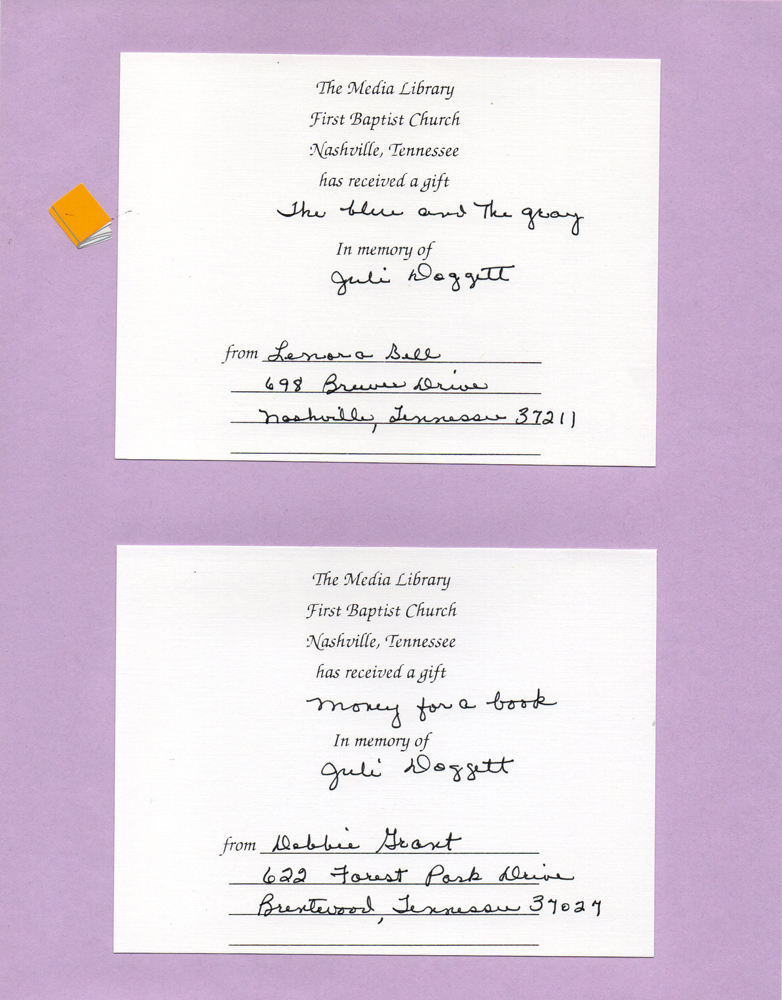 The Media Library
First Baptist Church
Nashville, Tennessee
has received a gift
The blue and The gray
In memory of
Juli Doggett
from Lenora Bell
698 Brewer Drive
Nashville, Tennessee 37211
The Media Library
First Baptist Church
Nashville, Tennessee
has received a gift
Money for a book
In memory of
Juli Doggett
from Debbie Grant
622 Forest Park Drive
Brentwood, Tennessee 37027